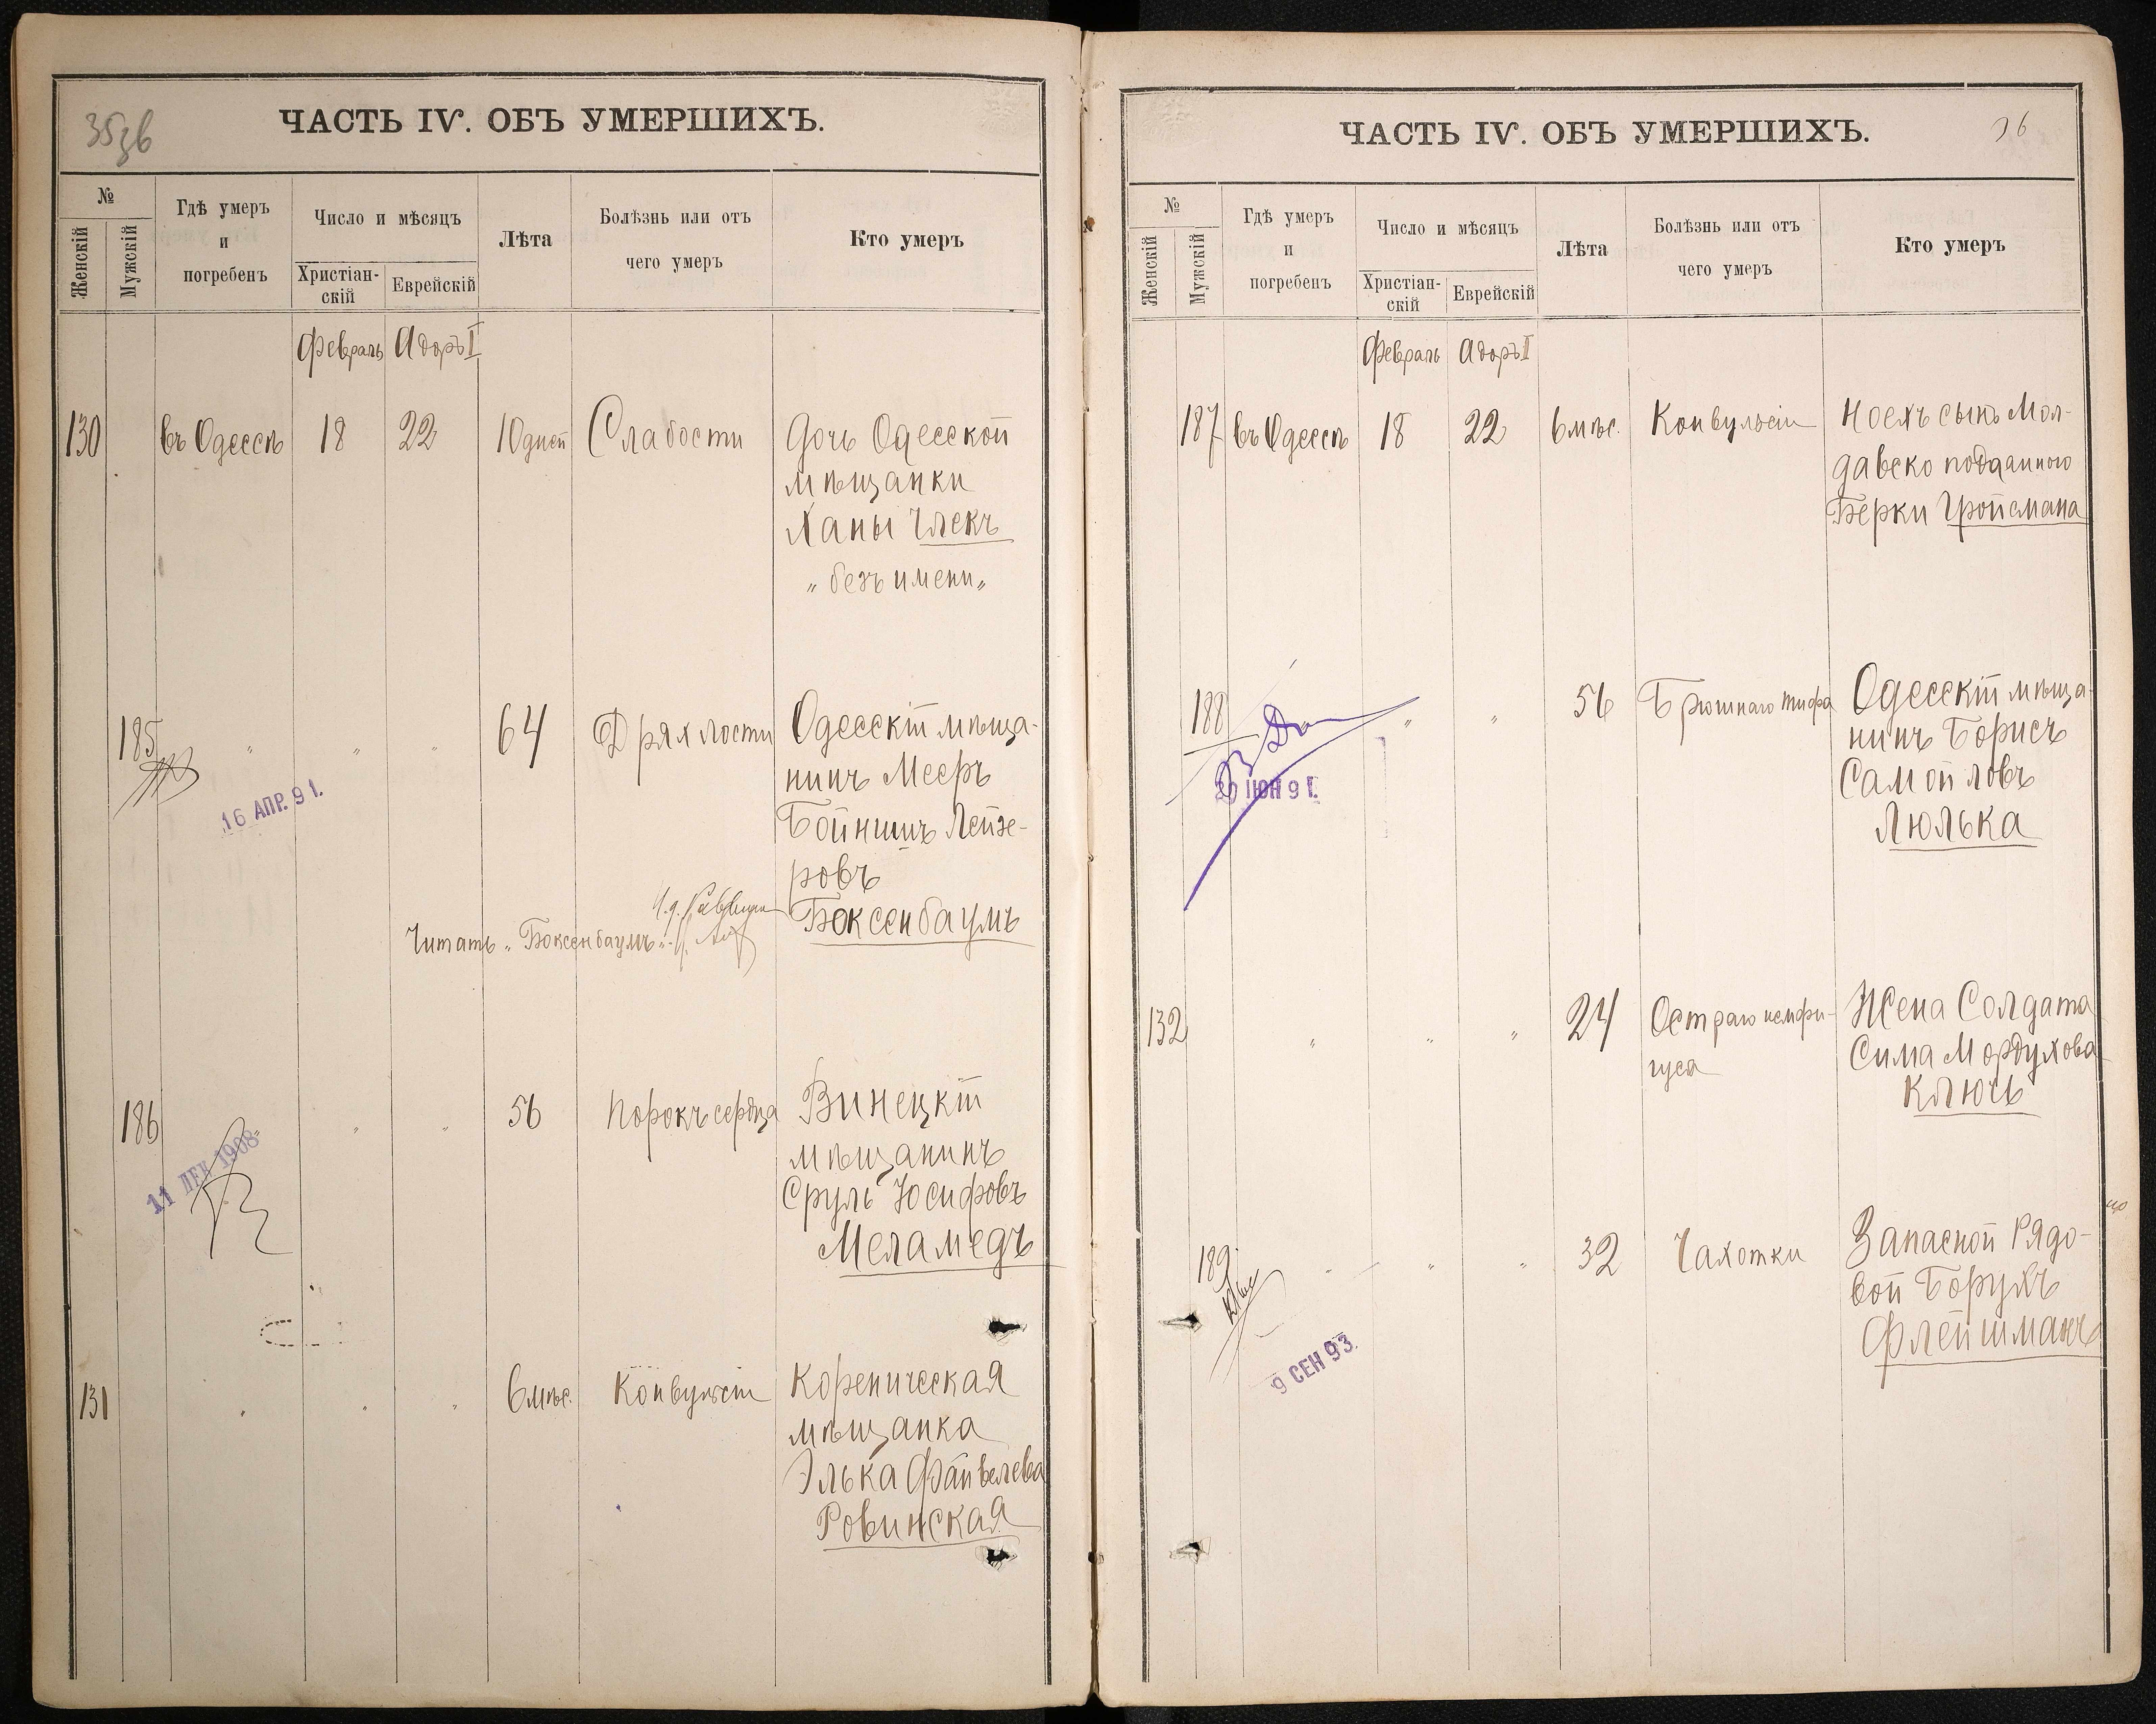 35зв
ЧАСТЬ IV. ОБЪ УМЕРШИХЪ.
№
Женскій
Мужскій
Гдѣ умеръ
и
погребенъ
Число и мѣсяцъ
Христіан-
скій
Еврейскій
Лѣта
Болѣзнь или отъ
чего умеръ
Кто умеръ
Февраль Адоръ II
130 въ Одессѣ 18 22 10 дней Слабости Дочь Одесской
мѣщанки
Ханы Члекъ
„безъ имени„
185 „ „ „ 64 Дряхлости Одесскій мѣща-
нинъ Мееръ
Бойнишъ Лейзе-
ровъ
Боксенбаумъ
16 АПР. 91.
Читать „Боксенбаумъ„. И.д. Раввина
186 „ „ „ 56 Порокъ сердца Винецкій
мѣщанинъ
Сруль Іосифовъ
Меламедъ
11 ДЕК 1908
131 „ „ „ 6 мѣс. Конвульсіи Кореническая
мѣщанка
Элька Файвелева
Ровинская
36
ЧАСТЬ IV. ОБЪ УМЕРШИХЪ.
№
Женскій
Мужскій
Гдѣ умеръ
и
погребенъ
Число и мѣсяцъ
Христіан-
скій
Еврейскій
Лѣта
Болѣзнь или отъ
чего умеръ
Кто умеръ
Февраль Адоръ II
187 въ Одессѣ 18 22 6 мѣс. Конвульсіи Ноехъ сынъ Мол-
давско подданного
Берки Гройсмана
188 „ „ 56 Брюшнаго тифа Одесскій мѣща-
нинъ Борисъ
Самойловъ
Люлька
ІЮН 91.
132 „ „ „ 24 Остраго пемфи-
гуса
Жена Солдата
Сима Мордухова
Ключъ
189 „ „ „ 32 Чахотки Запасной Рядо-
вой Борухъ
Флейшманъ
9 СЕН 93.